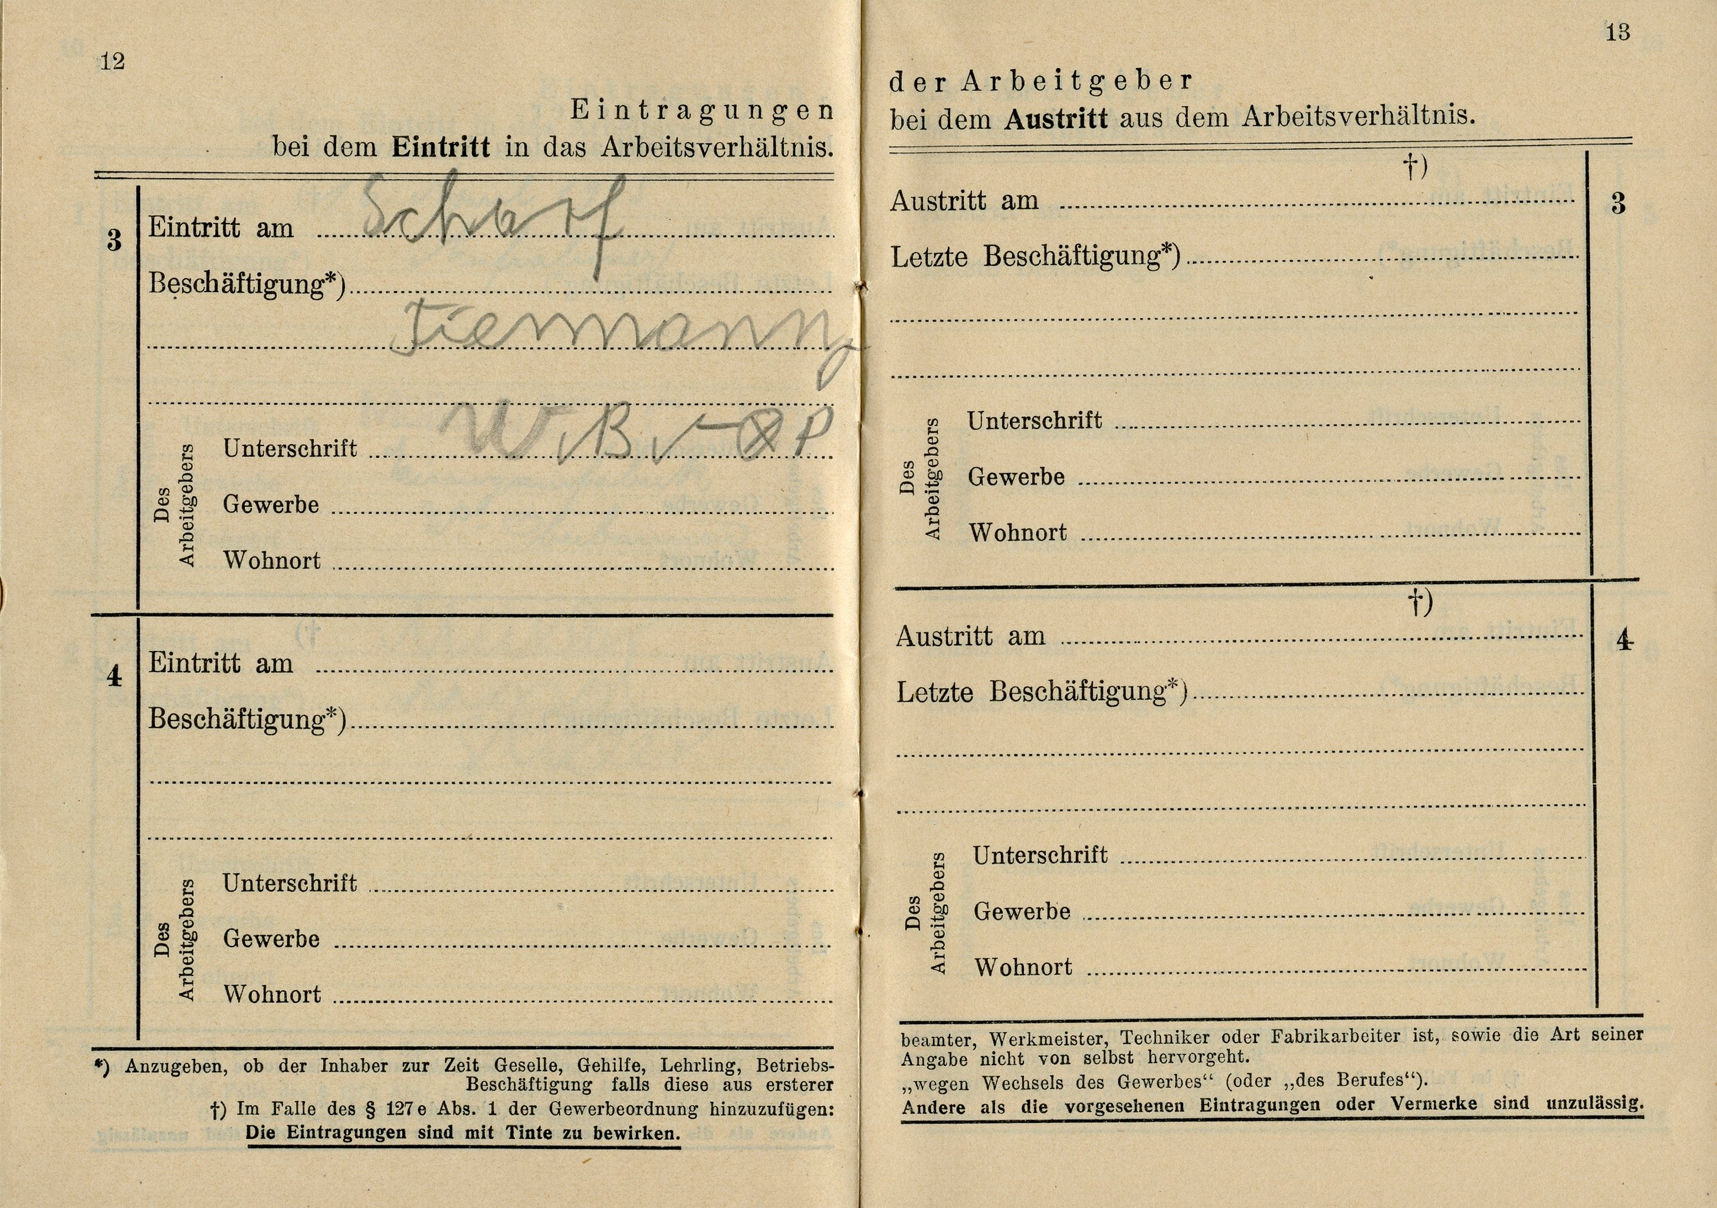 12
Eintragungen
bei dem Eintritt in das Arbeitsverhältnis.
3
Eintritt am Scharf
Beschäftigung*)
Tiermann
Des Arbeitgebers
Unterschrift W B
Gewerbe
Wohnort
4
Eintritt am
Beschäftigung*)
Des Arbeitgebers
Unterschrift
Gewerbe
Wohnort
*) Anzugeben, ob der Inhaber zur Zeit Geselle, Gehilfe, Lehrling, Betriebs-
Beschäftigung falls diese aus ersterer
†) Im Falle des § 127e Abs. 1 der Gewerbeordnung hinzuzufügen:
Die Eintragungen sind mit Tinte zu bewirken.
13
der Arbeitgeber
bei dem Austritt aus dem Arbeitsverhältnis.
†)
Austritt am
3
Letzte Beschäftigung*)
Des Arbeitgebers
Unterschrift
Gewerbe
Wohnort
†)
Austritt am
4
Letzte Beschäftigung*)
Des Arbeitgebers
Unterschrift
Gewerbe
Wohnort
beamter, Werkmeister, Techniker oder Fabrikarbeiter ist, sowie die Art seiner
Angabe nicht von selbst hervorgeht.
„wegen Wechsels des Gewerbes“ (oder „des Berufes“).
Andere als die vorgesehenen Eintragungen oder Vermerke sind unzulässig.